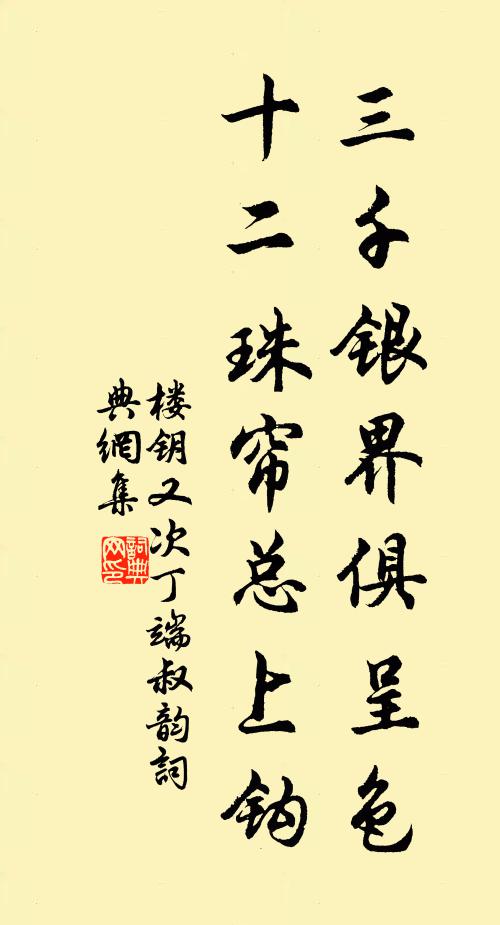 三千银界俱呈色
十二珠帘总上钩
楼钥又次丁端叔韵词
典網集
詞典
网印